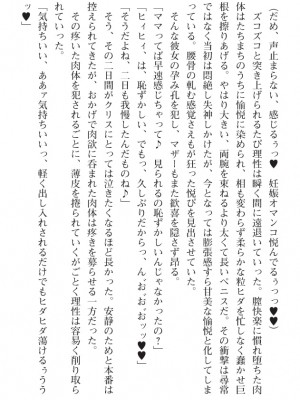 (だめ、声止まらない、感じるぅっ♥ 妊娠オマンコ悦んでるぅっっ♥♥)
ズコズコと突き上げられるたび理性は瞬く間に遠退いていった。膣快楽に慣れ堕ちた肉
体はたちまちのうちに愉悦に染められ、相も変わらず柔らかな粒ヒダを忙しなく蠢かせ巨
根を擦りあげる。やはり大きい、両腕を束ねるより太くて長いペニスだ。その衝撃は尋常
ではなく当初は悶絶し失神しかけたが、今となっては膨張感すら甘美な愉悦と化してしま
っている。腰骨の軋む感覚さえもが狂った悦びを見出させていた。
そんな彼女の孕み孔を犯し、マザーもまた歓喜を隠さず昂る。
「ママってば早速感じちゃって♪ 見られるの恥ずかしいんじゃなかったの?」
「ヒィヒィ、は、恥ずかしい、でもっ、久しぶりだからっ、んぉおぉおッッ♥♥」
「そうだよね、二日も我慢したんだものね♪」
そう、その二日間がクリスにとっては泣きたくなるほど長かった。安静のためと本番は
控えられてきたが、おかげで肉欲に呑まれた肉体は疼きを募らせる一方だった。
その疼いた肉体を犯されるごとに、薄皮を捲られていくがごとく理性は容易く削り取ら
れていった。
「気持ちいい、ああァ気持ちいいっ、軽く出し入れされるだけでもヒダヒダ蕩けるぅうう
ッ♥」